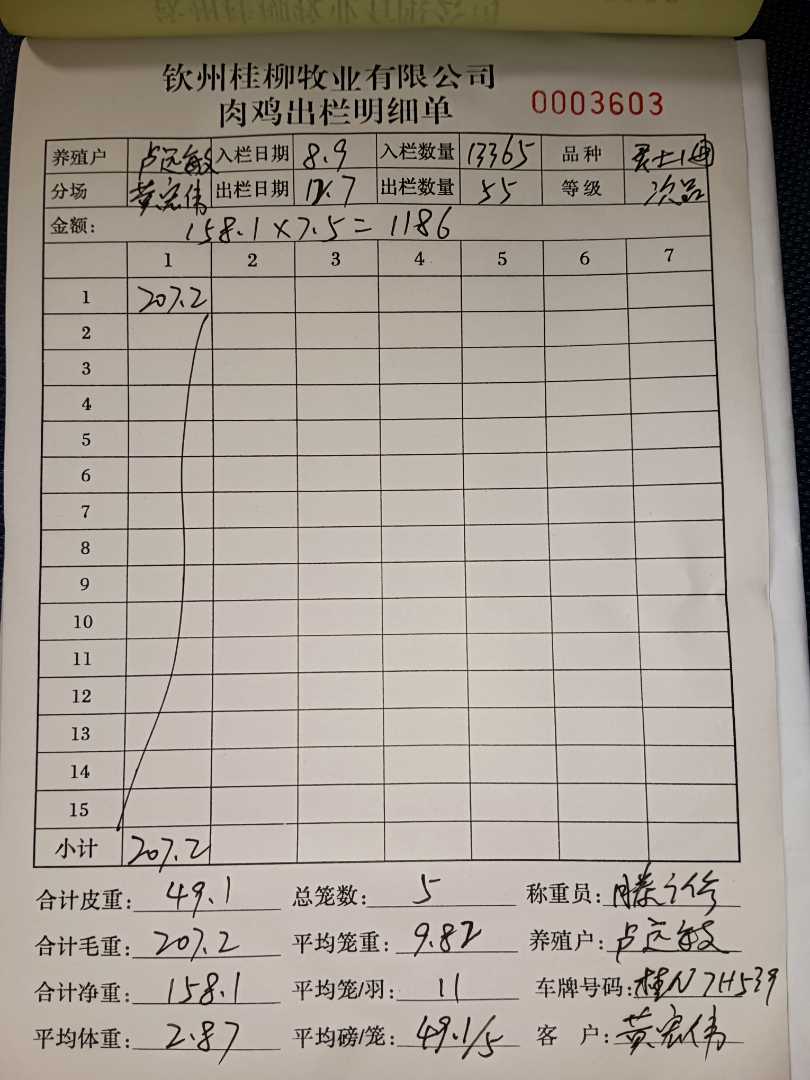 钦州桂柳牧业有限公司
肉鸡出栏明细单 0003603
养殖户 卢远敏 入栏日期 8.9 入栏数量 13365 品种
分场 黄宏伟 出栏日期 12.7 出栏数量 55 等级 次品
金额: 158.1×7.5=1186
1 2 3 4 5 6 7
1 207.2
2
3
4
5
6
7
8
9
10
11
12
13
14
15
小计 207.2
合计皮重: 49.1 总笼数: 5 称重员:
合计毛重: 207.2 平均笼重: 9.82 养殖户: 卢远敏
合计净重: 158.1 平均笼/羽: 11 车牌号码: 桂N7H539
平均体重: 2.87 平均磅/笼: 49.1/5 客户: 黄宏伟